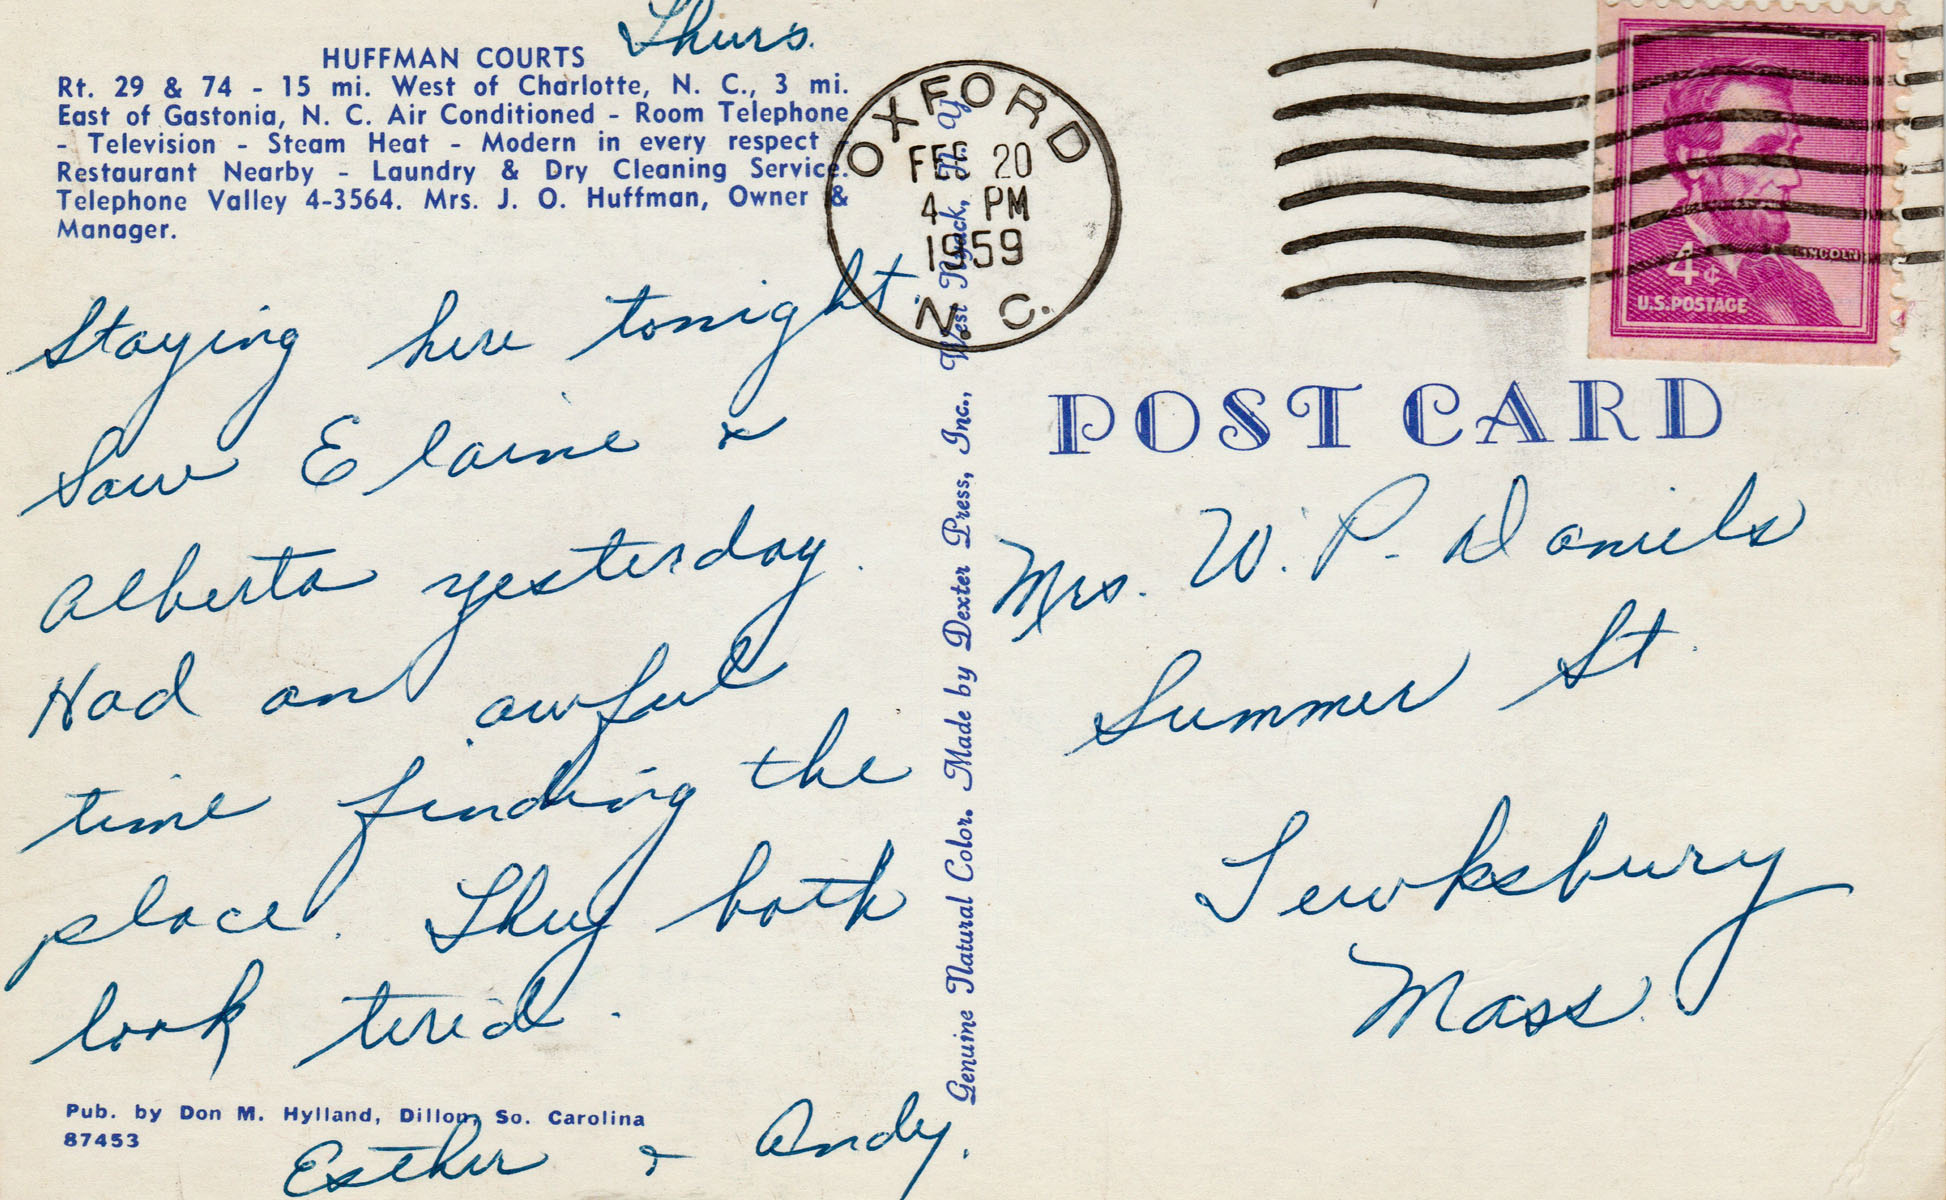 Thurs.
HUFFMAN COURTS
Rt. 29 & 74 - 15 mi. West of Charlotte, N. C., 3 mi.
East of Gastonia, N. C. Air Conditioned - Room Telephone
- Television - Steam Heat - Modern in every respect -
Restaurant Nearby - Laundry & Dry Cleaning Service.
Telephone Valley 4-3564. Mrs. J. O. Huffman, Owner &
Manager.
Staying here tonight.
Saw Elaine &
Alberta yesterday.
Had an awful
time finding the
place. They both
look tired.
Esther & Andy.
Pub. by Don M. Hylland, Dillon, So. Carolina
87453
Genuine Natural Color. Made by Dexter Press, Inc., West Nyack, N. Y.
OXFORD
FEB 20
4 PM
1959
N. C.
LINCOLN
4¢
U.S. POSTAGE
POST CARD
Mrs. W. P. Daniels
Summer St.
Tewksbury
Mass.